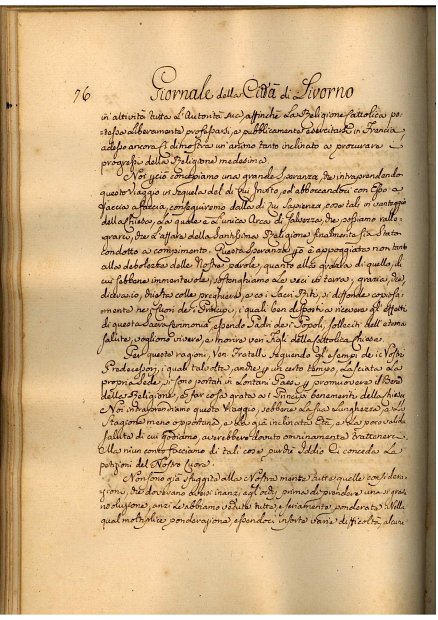 76 Giornale della Città di Livorno
in attività tutta l'Autorità sua, affinchè la Religione Cattolica po-
tesse liberamente professarsi, e pubblicamente esercitarsi in Francia,
adesso ancora si dimostra un'animo tanto inclinato a procurare i
progressi della Religione medesima.
Noi perciò concepiamo una grande speranza, che intraprendendo
questo Viaggio in sequela del di Lui Invito, ed abboccandoci con Esso a
faccia a faccia, conseguiremo dalla di Lui Sapienza cose tali in vantaggio
della Chiesa, la quale è l'unica Arca di salvezza, che possiamo ralle-
grarci, che l'affare della Santissima Religione finalmente sia stato
condotto a compimento. Questa speranza è appoggiata non tanto
alla debolezza delle Nostre parole, quanto alla grazia di quello, di
cui sebbene immeritevoli, sostenghiamo le veci in terra, grazia, che
dicevasi, colle preghiere, e co i Sacri Riti, si diffonde copiosa-
mente ne' Cuori de' Principi, i quali ben disposti a ricevere gli effetti
di questa Sacra Cerimonia, essendo Padri de i Popoli, solleciti dell'eterna
salute, vogliono vivere, e morire veri Figli della Cattolica Chiesa.
Per queste ragioni, Ven. Fratelli, seguendo gli esempi de i Nostri
Predecessori, i quali talvolta, anche per un certo tempo, lasciata la
propria Sede, si sono portati in lontani Paesi, per promuovere il Bene
della Religione, e far cosa grata a i Principi benemeriti della Chiesa,
Noi intraprendiamo questo Viaggio, sebbene la sua lunghezza, la
Stagione meno opportuna, e la già inclinata Età, e la poco valida
salute di cui godiamo, averebbero dovuto onninamente trattenerci.
Ma niun conto facciamo di tali cose, purchè Iddio Ci conceda le
petizioni del Nostro Cuore.
Non sono già sfuggite alla Nostra mente tutte quelle considera-
zioni, che dovevano aversi inanzi agli occhi prima di prendere una sì gran
risoluzione, anzi le abbiamo vedute tutte, e seriamente ponderate. Nella
qual moltiplice ponderazione, essendoci insorte varie difficoltà, alcune